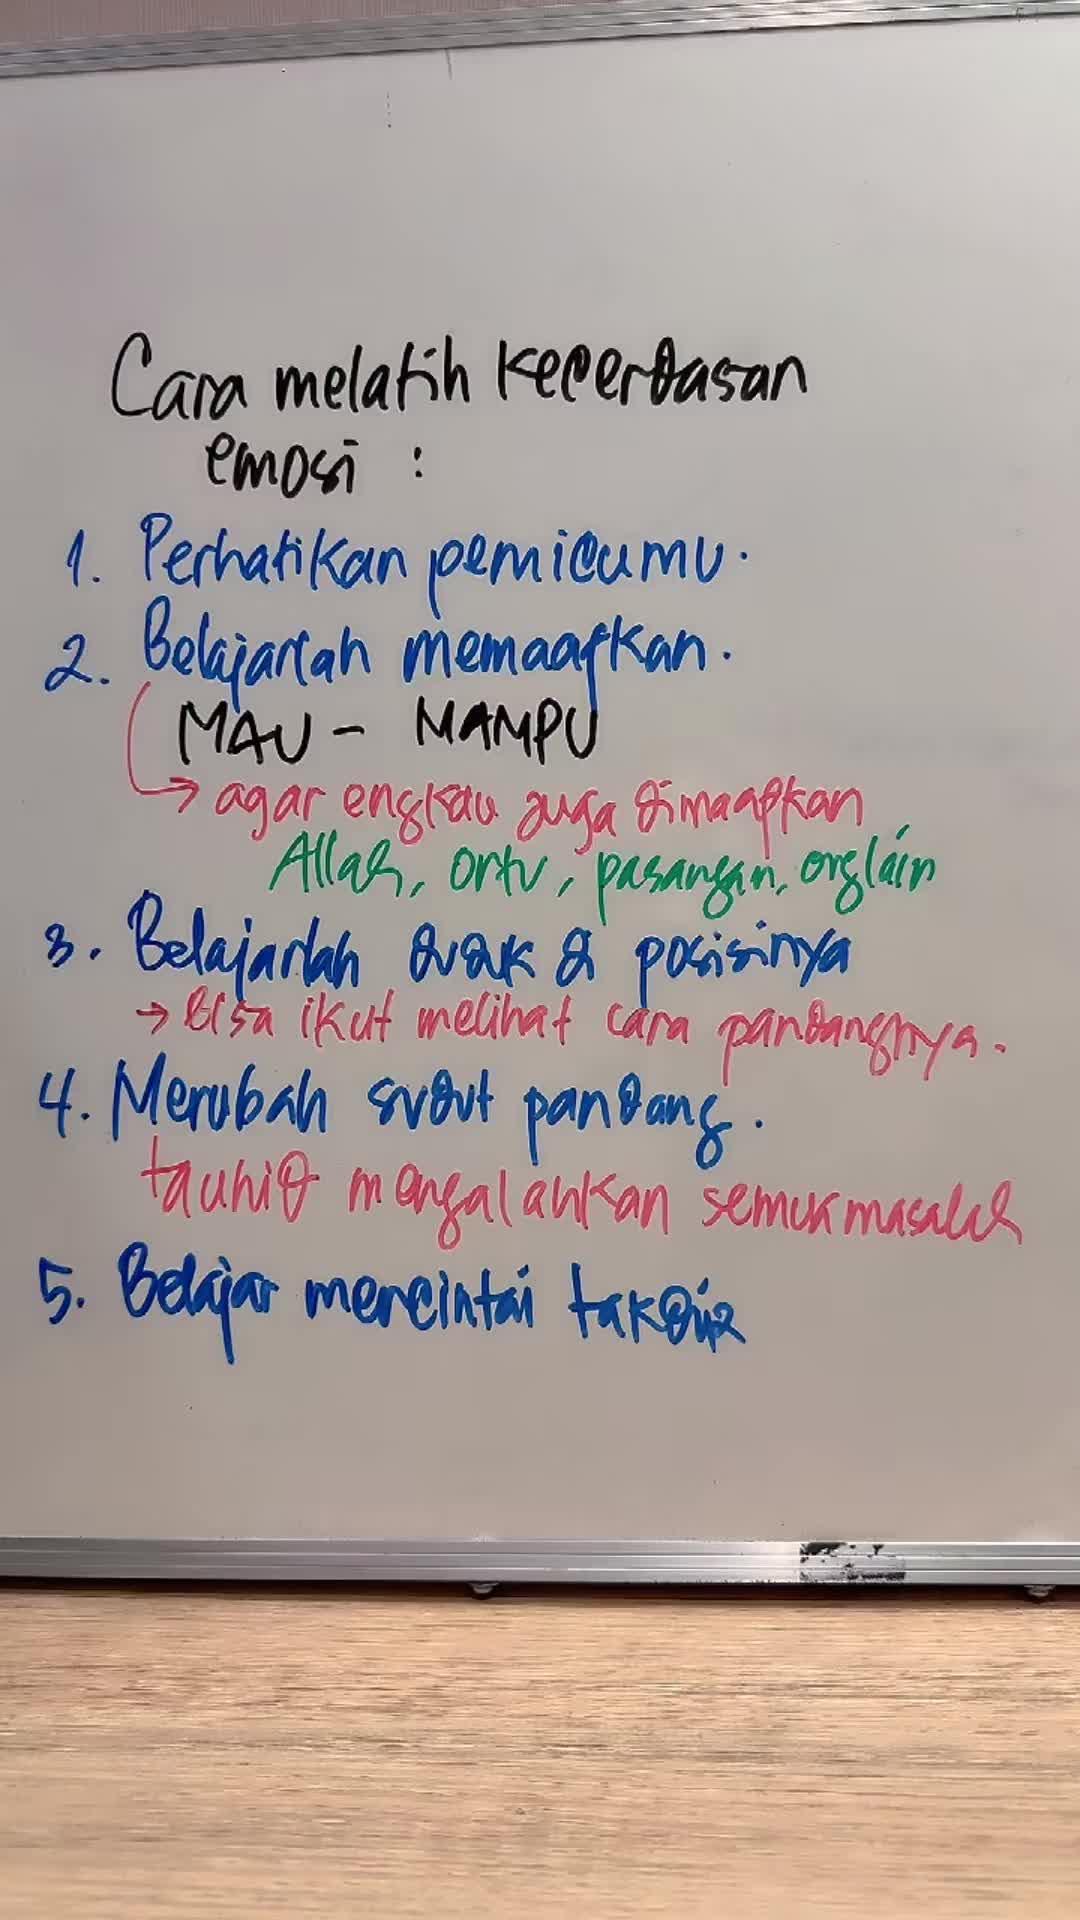 Cara melatih kecerdasan
emosi :
1. Perhatikan pemicumu.
2. Belajarlah memaafkan.
MAU - MAMPU
→ agar engkau juga dimaafkan
Allah, ortu, pasangan, orglain
3. Belajarlah duduk di posisinya
→ Bisa ikut melihat cara pandangnya.
4. Merubah sudut pandang.
tauhid mengalahkan semua masalah
5. Belajar mencintai takdir